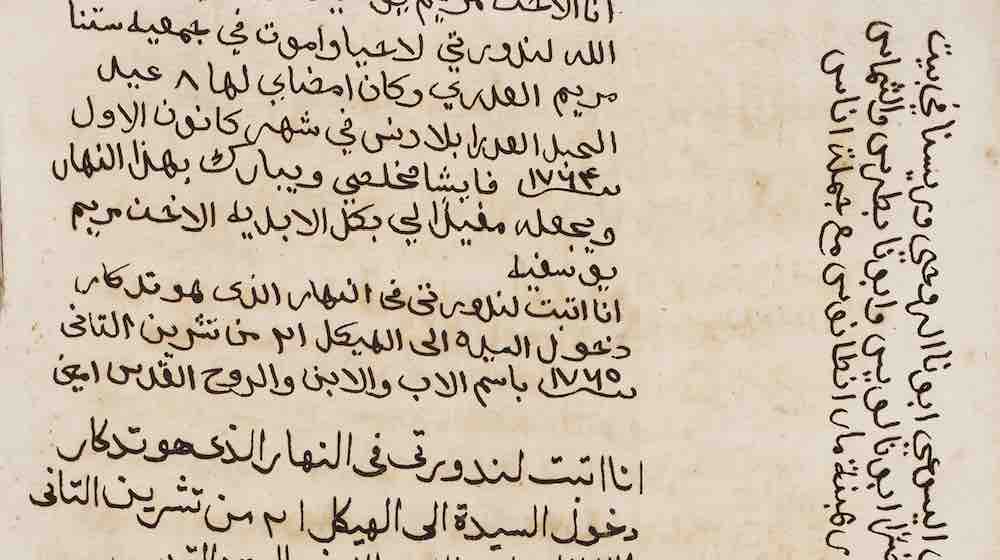 انا الاخت مريم
الله لندورتي لاحيا واموت في جمعية ستنا
مريم العدري وكان امضاي لها ٨ عيد
الحبل العدرا بلا دنس في شهر كانون الاول
سنة ١٧٦٤ فايشا مخلصي ويبارك بهذا النهار
ويجعله مفيدًا لي بكل الابدية الاخت مريم
انا اتبت لندورتي في النهار الذي هو تدكار
دخول السيدة الى الهيكل ٢١ من تشرين التاني
سنة ١٧٦٥ باسم الاب والابن والروح القدس امين
انا اتبت لندورتي في النهار الذي هو تدكار
دخول السيدة الى الهيكل ٢١ من تشرين التاني
اليسوعي ابونا الروحي وريسنا في بيت
ابونا لويس وابونا بطرس والشماس
مار انطانوس مع جملة اناس